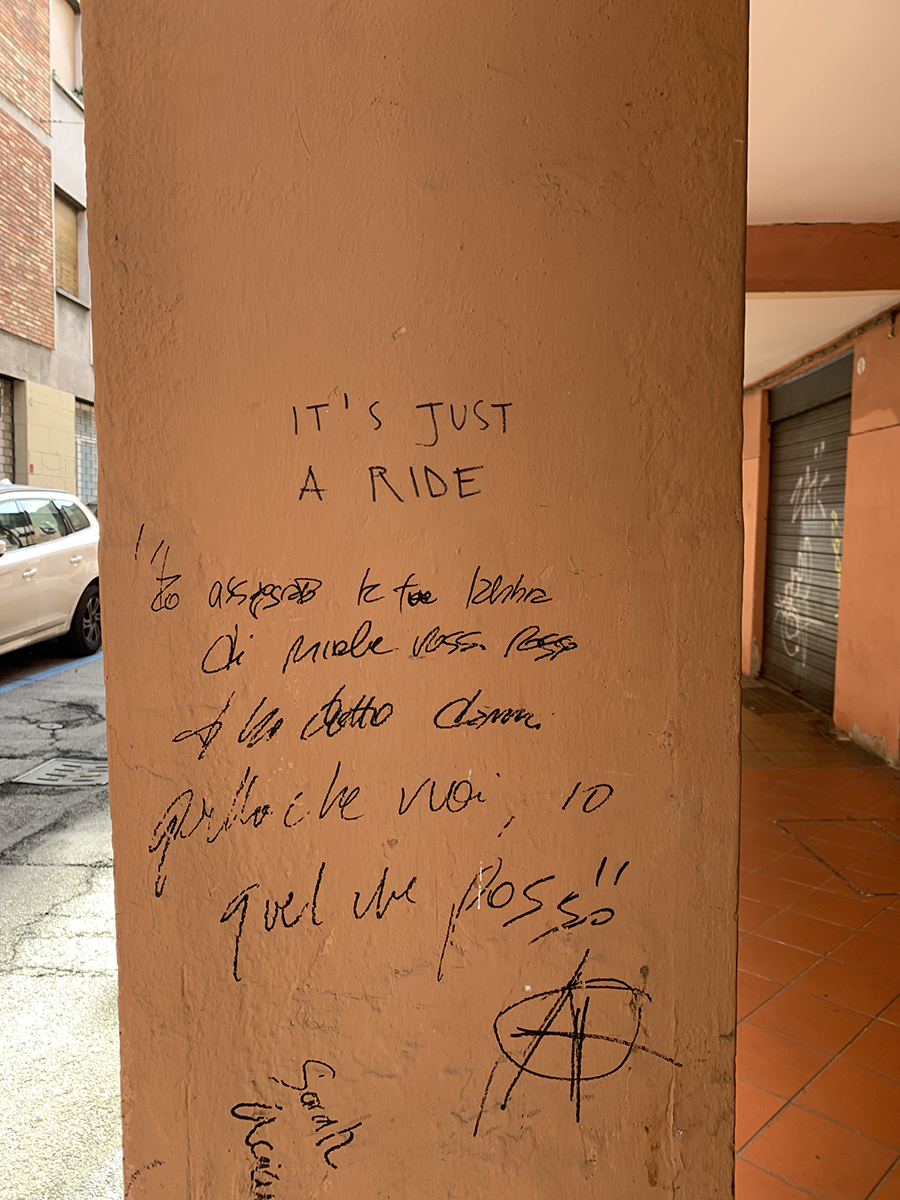 IT'S JUST
A RIDE
"Io assaggio le tue labbra
di miele rosso rosso
ti ho detto dammi
quello che vuoi, io
quel che posso"
A
Sarah